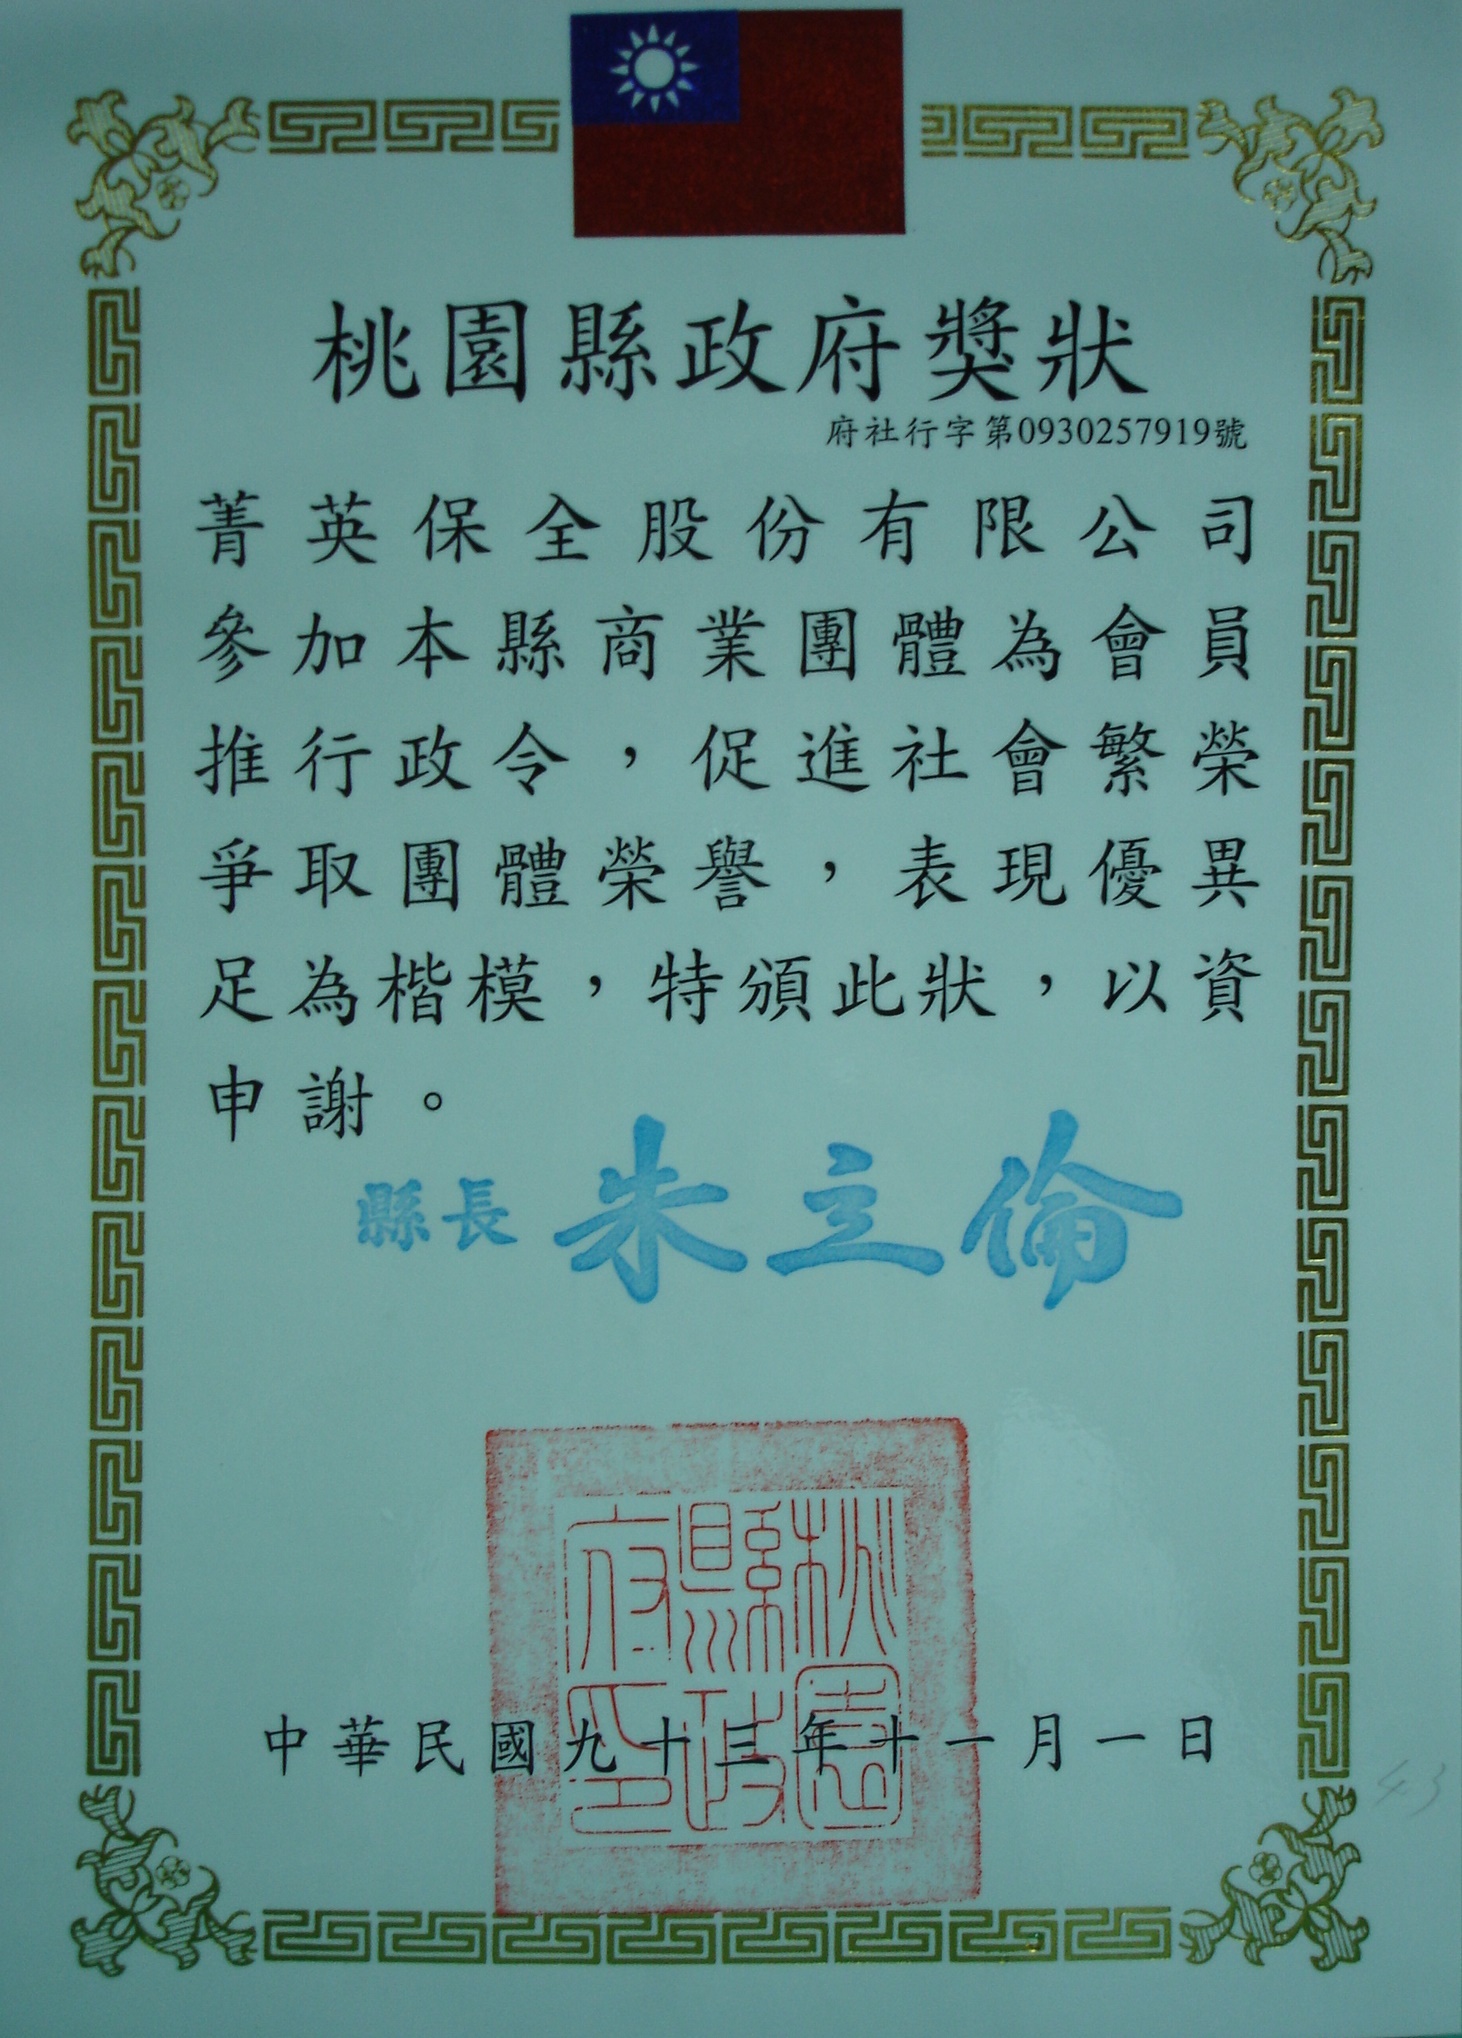 桃園縣政府獎狀
府社行字第0930257919號
菁英保全股份有限公司
參加本縣商業團體為會員
推行政令，促進社會繁榮
爭取團體榮譽，表現優異
足為楷模，特頒此狀，以資
申謝。
縣長 朱立倫
桃園縣政府印
中華民國九十三年十一月一日
43